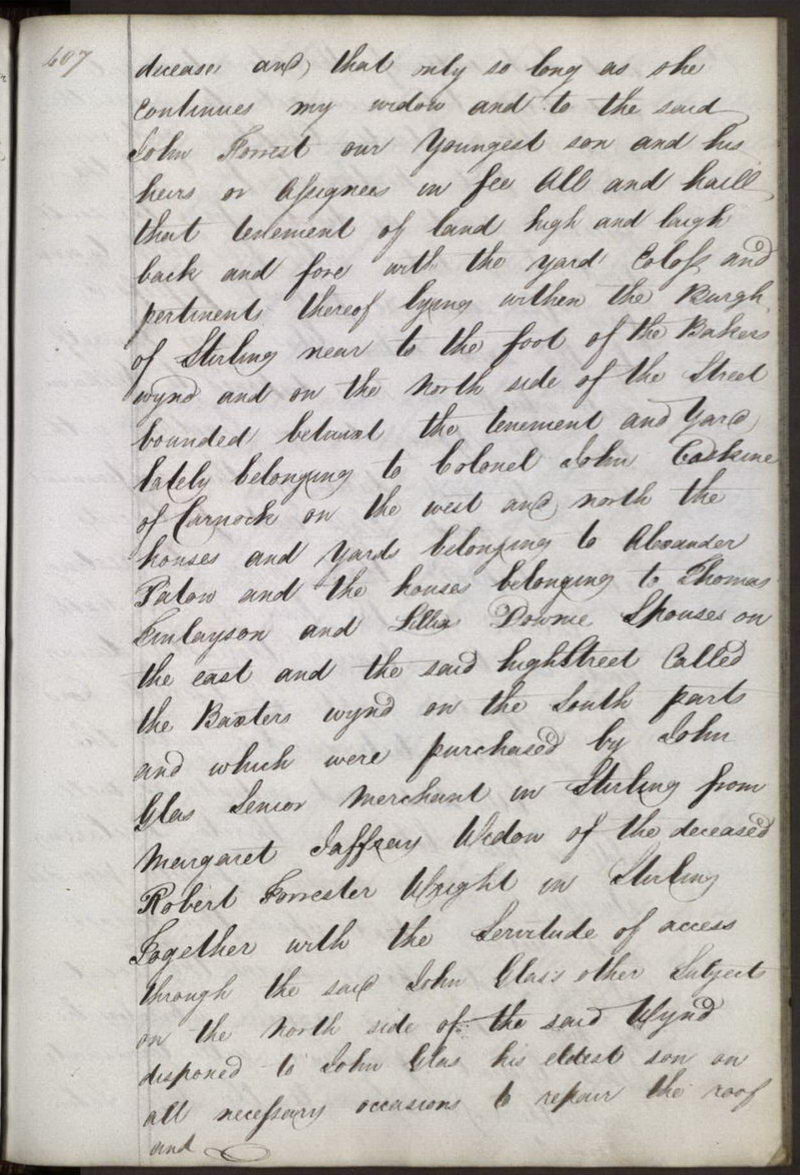 607
decease and that only so long as she
continues my widow and to the said
John Forrest our Youngest son and his
heirs or Assignees in fee All and haill
that tenement of land high and laigh
back and fore with the yard Closs and
pertinents thereof lying within the Burgh
of Stirling near to the foot of the Bakers
wynd and on the North side of the Street
bounded betwixt the tenement and Yard
lately belonging to Colonel John Erskine
of Carnock on the west and north the
houses and Yards belonging to Alexander
Paton and the houses belonging to Thomas
Finlayson and Lillia Downie Spouses on
the east and the said high Street Called
the Baxters wynd on the South parts
and which were purchased by John
Glas Senior Merchant in Stirling from
Margaret Jaffray Widow of the deceased
Robert Forrester Wright in Stirling
Together with the Servitude of access
through the said John Glas's other Subjects
on the North side of the said Wynd
disponed to John Glas his eldest son on
all necessary occasions to repair the roof
and